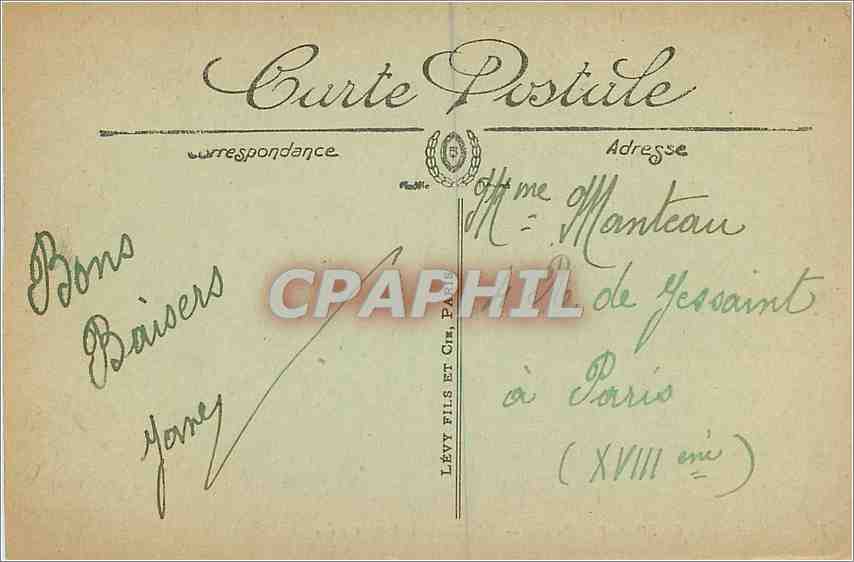 Carte Postale
Correspondance
Adresse
Bons
Baisers
Mme Manteau
de Jessaint
à Paris
(XVIII ème)
LÉVY FILS ET CIE, PARIS
CPAPHIL